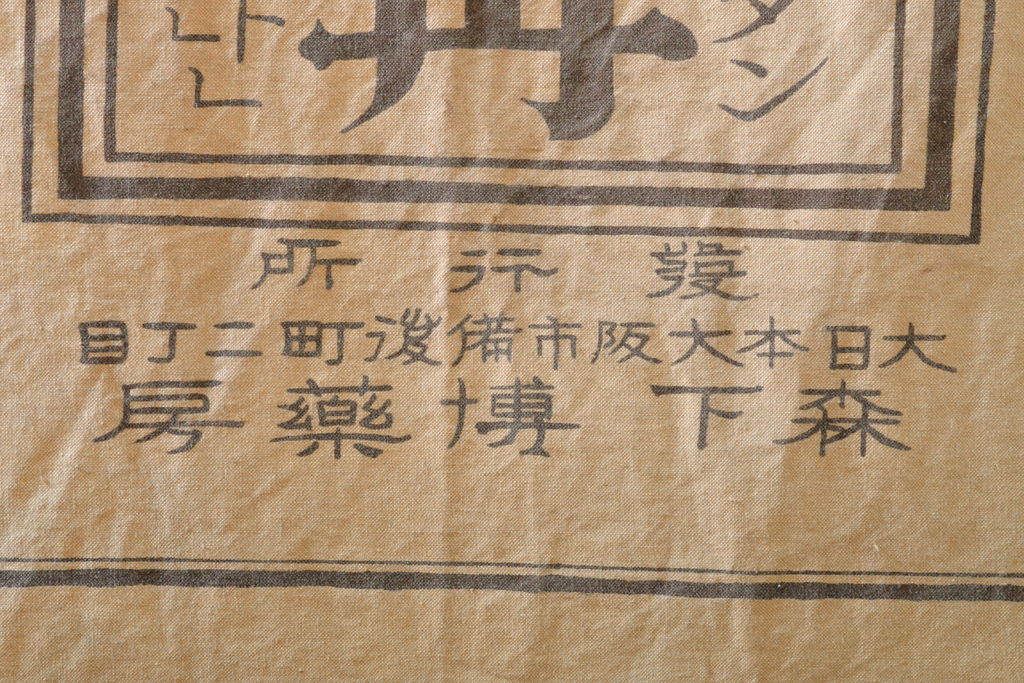 タン
丹
發行所
大日本大阪市備後町二丁目
森下博藥房